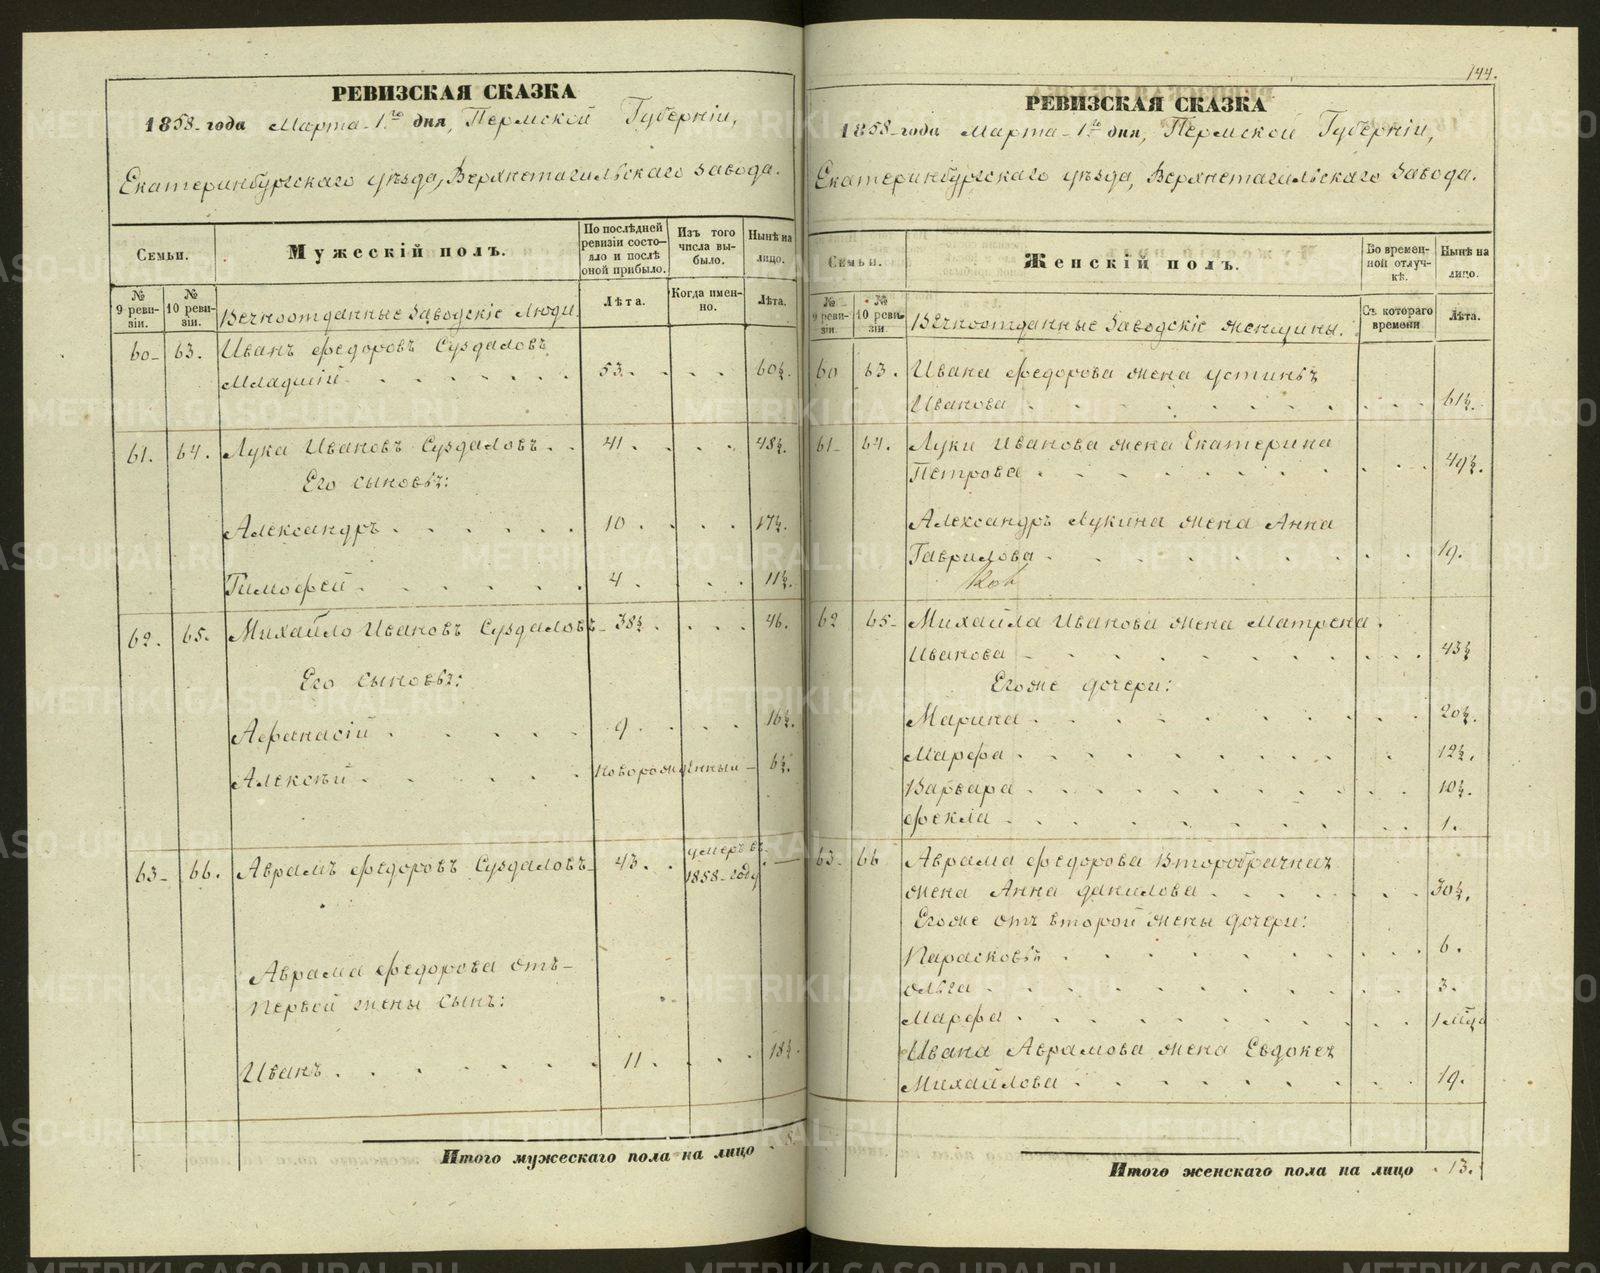 РЕВИЗСКАЯ СКАЗКА
1858 года Марта 1го дня, Пермской Губерніи,
Екатеринбургскаго уѣзда, Верхнетагильскаго завода.
Семьи.
Мужескій полъ.
По послѣдней ревизіи состояло и послѣ оной прибыло.
Изъ того числа выбыло.
Нынѣ на лицо.
№ 9 ревизіи.
№ 10 ревизіи.
Вечноотданные Заводскіе Люди.
Лѣта.
Когда именно.
Лѣта.
60 63. Иванъ Федоровъ Суздаловъ
Младшій 53. 60½.
61. 64. Лука Ивановъ Суздаловъ 41. 48½.
Его сыновья:
Александръ 10. 17½.
Тимофей 4. 11½.
62. 65. Михайло Ивановъ Суздаловъ 38½. 46.
Его сыновья:
Афанасій 9. 16½.
Алексѣй новорожденный 6½.
63 66. Аврамъ Федоровъ Суздаловъ 43. умеръ въ —
1858 году
Аврама Федорова отъ
первой жены сынъ:
Иванъ 11. 18½.
Итого мужескаго пола на лицо 8.
144.
РЕВИЗСКАЯ СКАЗКА
1858 года Марта 1го дня, Пермской Губерніи,
Екатеринбургскаго уѣзда, Верхнетагильскаго Завода.
Семьи.
Женскій полъ.
Во временной отлучкѣ.
Нынѣ на лицо.
№ 9 ревизіи.
№ 10 ревизіи.
Вечноотданные Заводскіе женщины.
Съ котораго времени
Лѣта.
60 63. Ивана Федорова жена Устинья
Иванова 61½.
61 64. Луки Иванова жена Екатерина
Петрова 49½.
Александръ Лукина жена Анна
Гаврилова 19.
62 65 Михайла Иванова жена Матрена
Иванова 43½
Егоже дочери:
Марина 20½.
Марфа 12½.
Варвара 10½.
Фекла 1.
63. 66 Аврама Федорова Второбрачная
жена Анна Данилова 30½.
Егоже отъ второй жены дочери:
Парасковья 6.
Ольга 3.
Марфа 1 мѣца
Ивана Аврамова жена Евдокея
Михайлова 19.
Итого женскаго пола на лицо 13.
METRIKI.GASO-URAL.RU